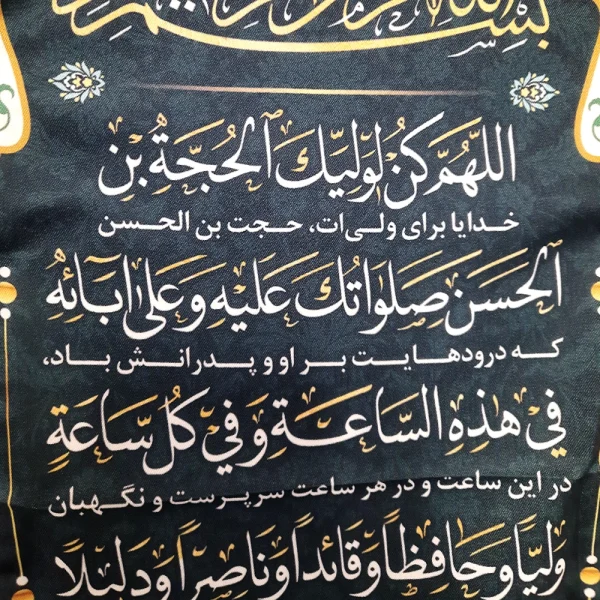 بسم الله الرحمن الرحیم
اللَّهُمَّ كُنْ لِوَلِيِّكَ الْحُجَّةِ بْنِ
خدایا برای ولی‌ات، حجت بن الحسن
الْحَسَنِ صَلَوَاتُكَ عَلَيْهِ وَعَلَىٰ آبَائِهِ
که درودهایت بر او و پدرانش باد،
فِي هَذِهِ السَّاعَةِ وَفِي كُلِّ سَاعَةٍ
در این ساعت و در هر ساعت سرپرست و نگهبان
وَلِيّاً وَحَافِظاً وَقَائِداً وَنَاصِراً وَدَلِيلاً